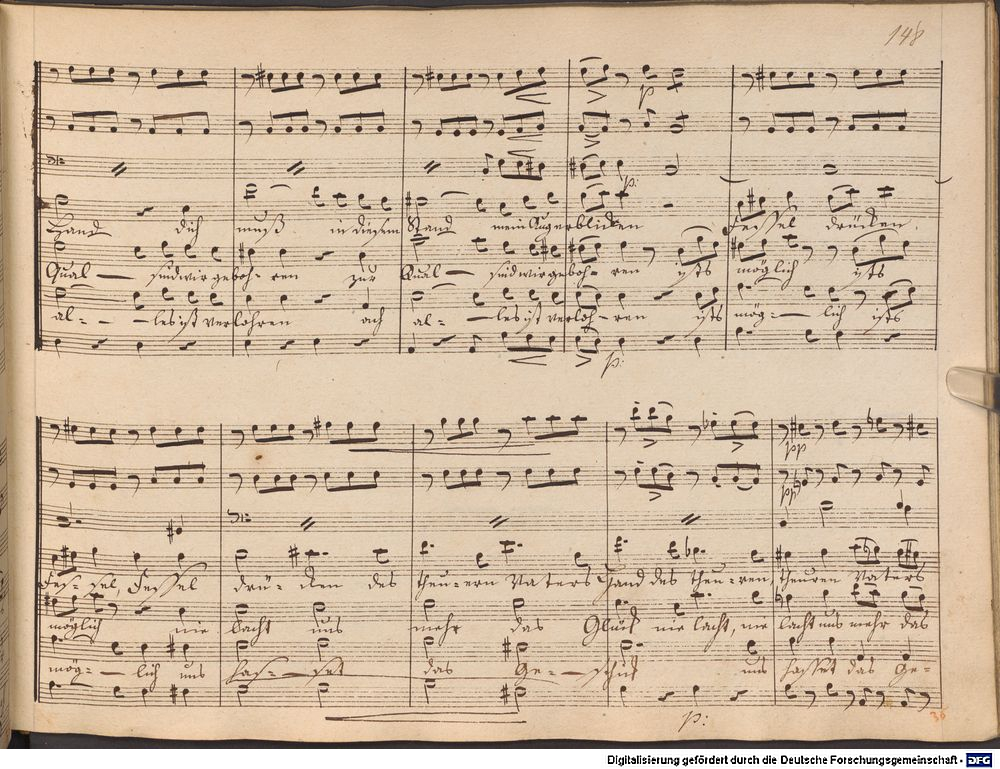 148
p
p.
Hand dich muß in diesem Stand mein Auge erblicken Fessel drücken.
Qual — sind wir geboh- ren zur Qual — sind wir geboh- ren ists möglich ists
al- - - les ist verlohren ach al- - - les ist verloh- ren ists mög- — lich ists
p:
pp
pp
Fes- sel, Fessel drü- cken des theu- ren Vaters Hand des theu- ren, theuren Vaters
möglich nie lacht uns mehr das Glück nie lacht, nie lacht uns mehr das
mög- — lich uns has- — set das Ge- — schick uns hasset das Ge-
p:
36
Digitalisierung gefördert durch die Deutsche Forschungsgemeinschaft - DFG